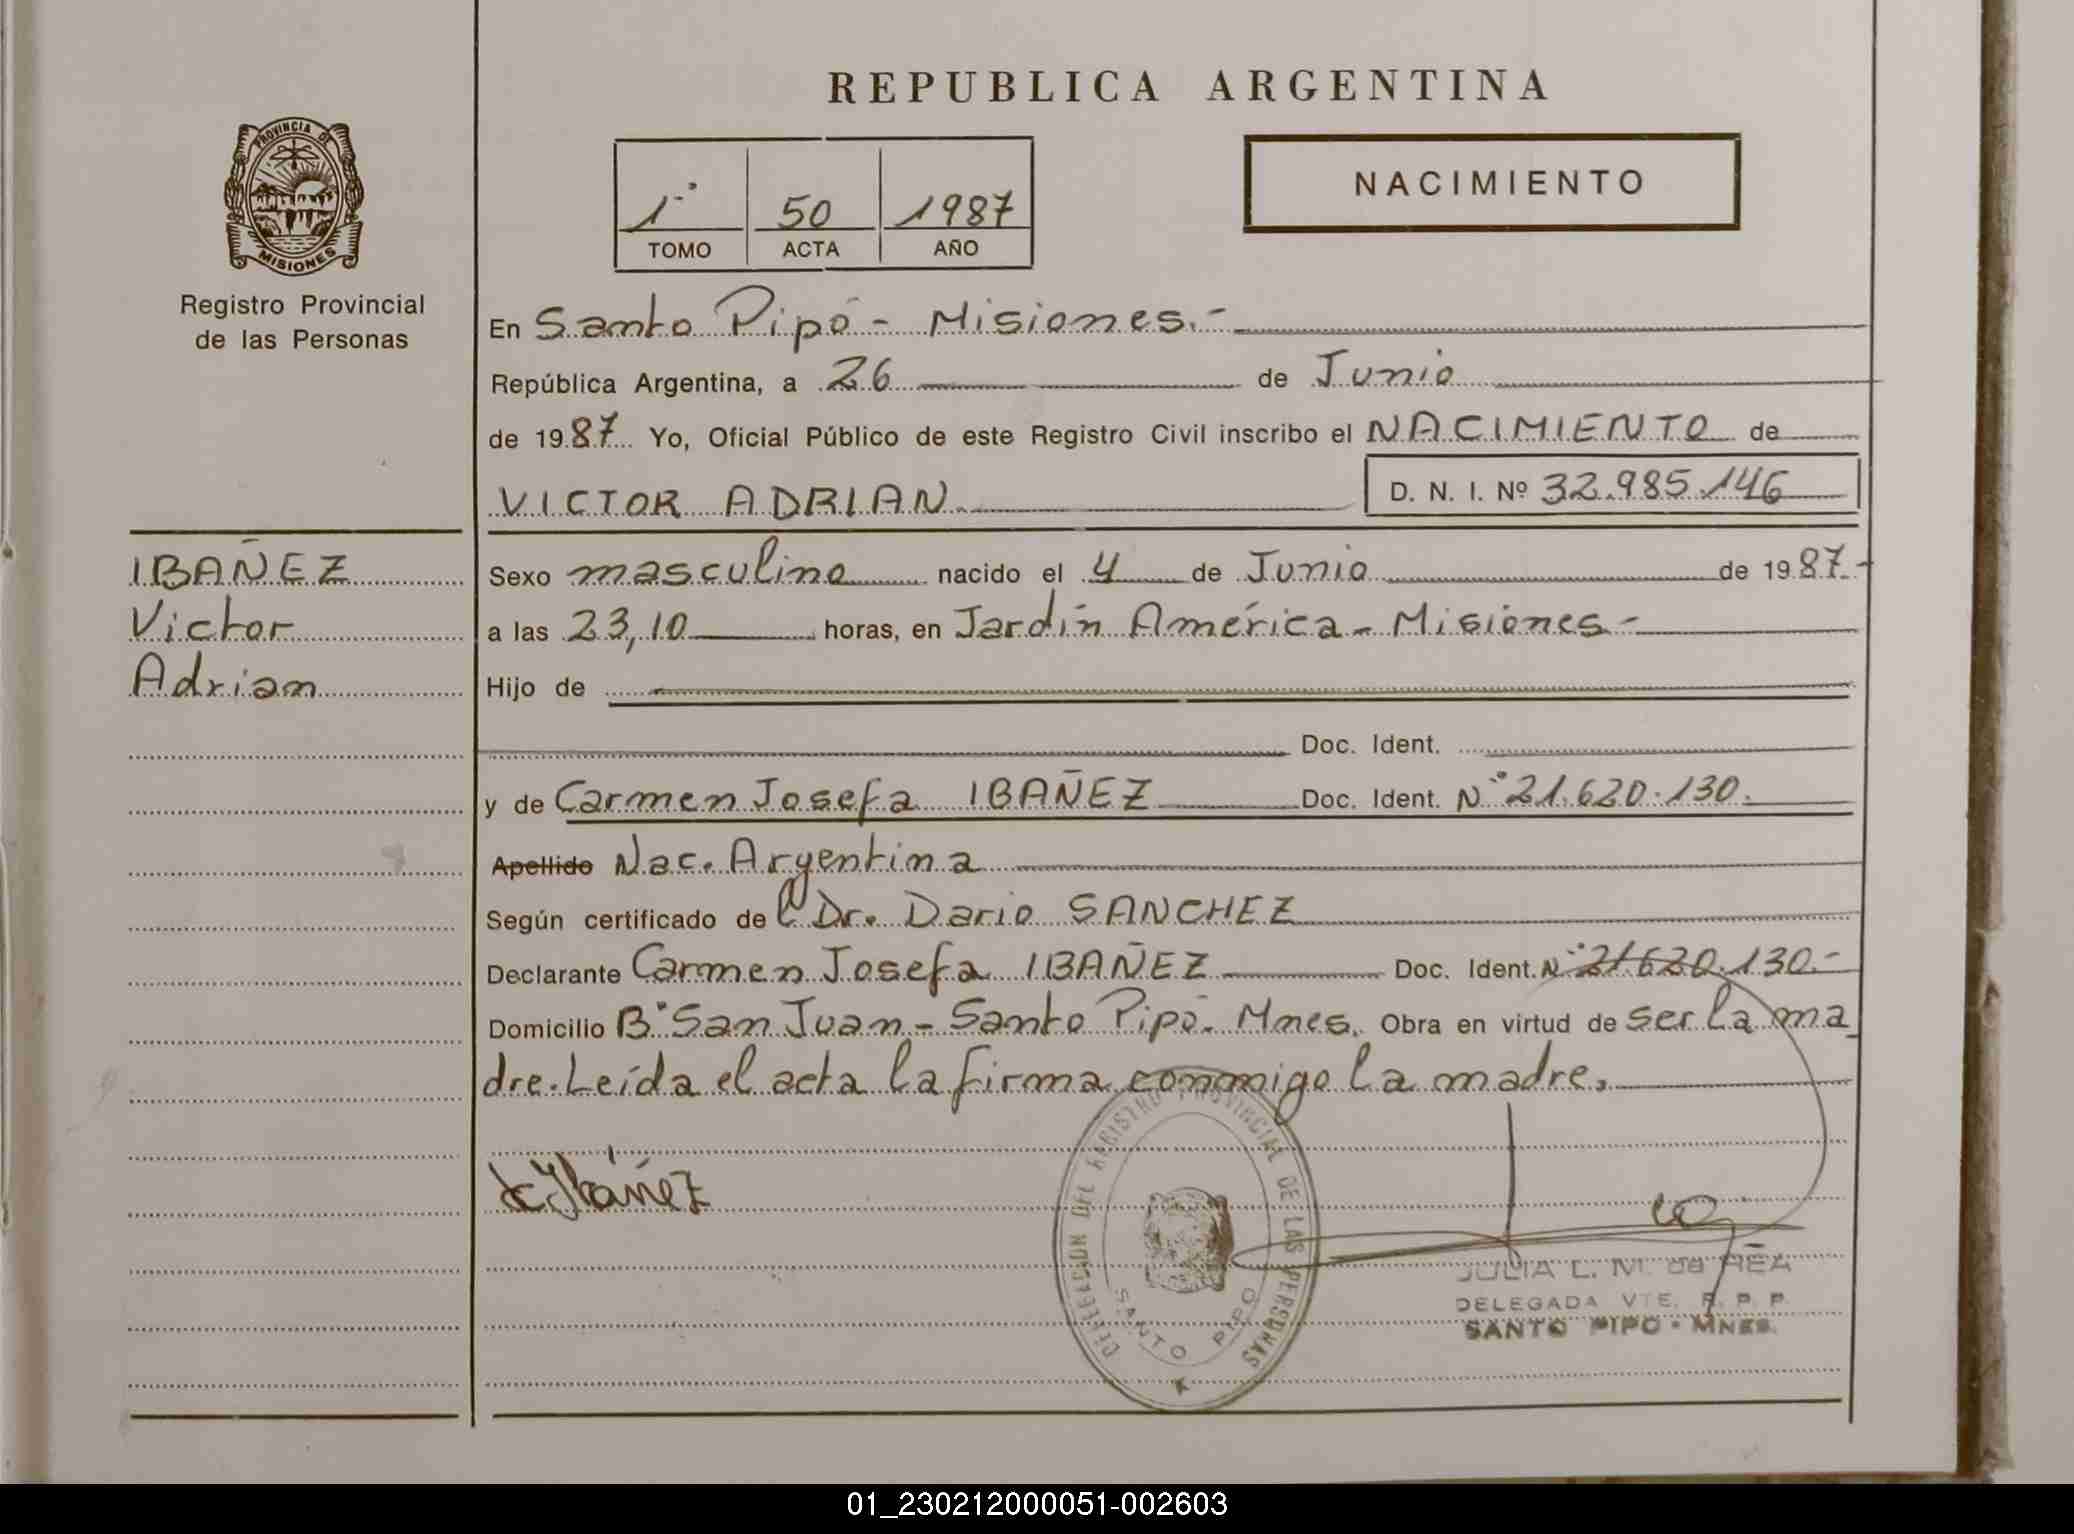 REPUBLICA ARGENTINA
PROVINCIA DE
MISIONES
Registro Provincial
de las Personas
1° 50 1987
TOMO ACTA AÑO
NACIMIENTO
En Santo Pipó - Misiones.-
República Argentina, a 26 de Junio
de 1987 Yo, Oficial Público de este Registro Civil inscribo el NACIMIENTO de
VICTOR ADRIAN. D. N. I. Nº 32.985.146
IBAÑEZ
Victor
Adrian
Sexo masculino nacido el 4 de Junio de 1987.-
a las 23,10 horas, en Jardín América - Misiones -
Hijo de
Doc. Ident.
y de Carmen Josefa IBAÑEZ Doc. Ident. N° 21.620.130.
Apellido Nac. Argentina
Según certificado de l Dr. Dario SANCHEZ
Declarante Carmen Josefa IBAÑEZ Doc. Ident. N° 21.620.130.-
Domicilio B° San Juan - Santo Pipó. Mnes. Obra en virtud de ser la ma
dre. Leída el acta la firma conmigo la madre.
C Ibáñez
DELEGACION DEL REGISTRO PROVINCIAL DE LAS PERSONAS
SANTO PIPO
JULIA L. M. de REA
DELEGADA VTE. R. P. P.
SANTO PIPO - MNES.
01_230212000051-002603